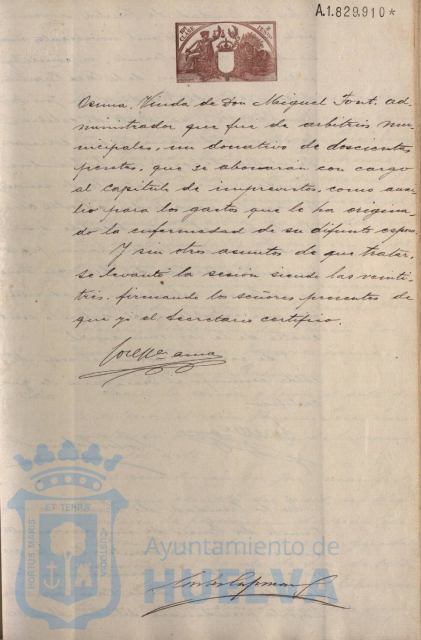 A.1.829.910*
Osuna, Viuda de Don Miguel Font, ad-
ministrador que fue de arbitrios mu-
nicipales, un donativo de doscientas
pesetas, que se abonarán con cargo
al capítulo de imprevistos, como auxi-
lio para los gastos que le ha origina-
do la enfermedad de su difunto esposo.
Y sin otros asuntos de que tratar,
se levantó la sesión siendo las veinti-
trés, firmando los señores presentes de
que yo el Secretario certifico.
PORTUS MARIS ET TERRE CUSTODIA
Ayuntamiento de
HUELVA